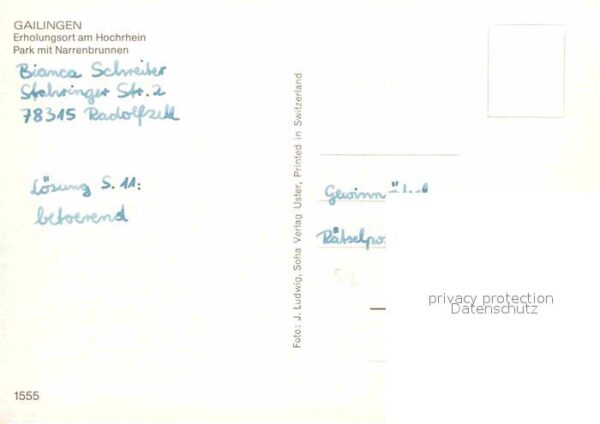 GAILINGEN
Erholungsort am Hochrhein
Park mit Narrenbrunnen
Bianca Schreiter
Stahringer Str. 2
78315 Radolfzell
Lösung S. 11:
betoerend
1555
Foto: J. Ludwig, Soha Verlag Uster, Printed in Switzerland
Gewinn
Rätselpo
privacy protection
Datenschutz